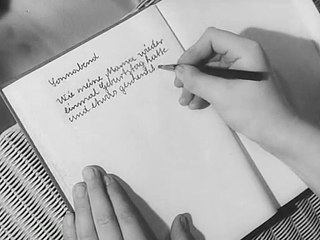 Sonnabend
Wie meine Mama wieder
einmal Geburtstag hatte
und etwas geschenkt